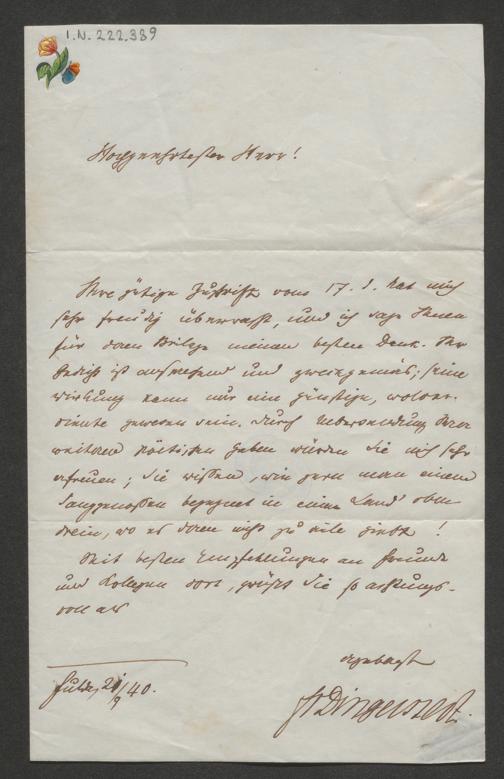 I.N. 222.389
Hochgeehrtester Herr!
Ihre gütige Zuschrift vom 17. d. hat mich
sehr freudig überrascht, und ich sage Ihnen
für deren Beilage meinen besten Dank. Ihr
Gedicht ist und zweckgemäß; seine
Wirkung kann nur eine günstige, wolver-
diente gewesen sein. Durch Uebersendung Ihrer
weiteren poetischen Gaben würden Sie mich sehr
erfreuen; Sie wissen, wie gern man einem
Sanggenossen begegnet in einem Land oben
drein, wo es deren nicht zu viele giebt!
Mit besten Empfehlungen an Freunde
und Kollegen dort, grüßt Sie so achtungs-
voll als
ergebenst
Fulda, 21/9 40.
FrDingelstedt.